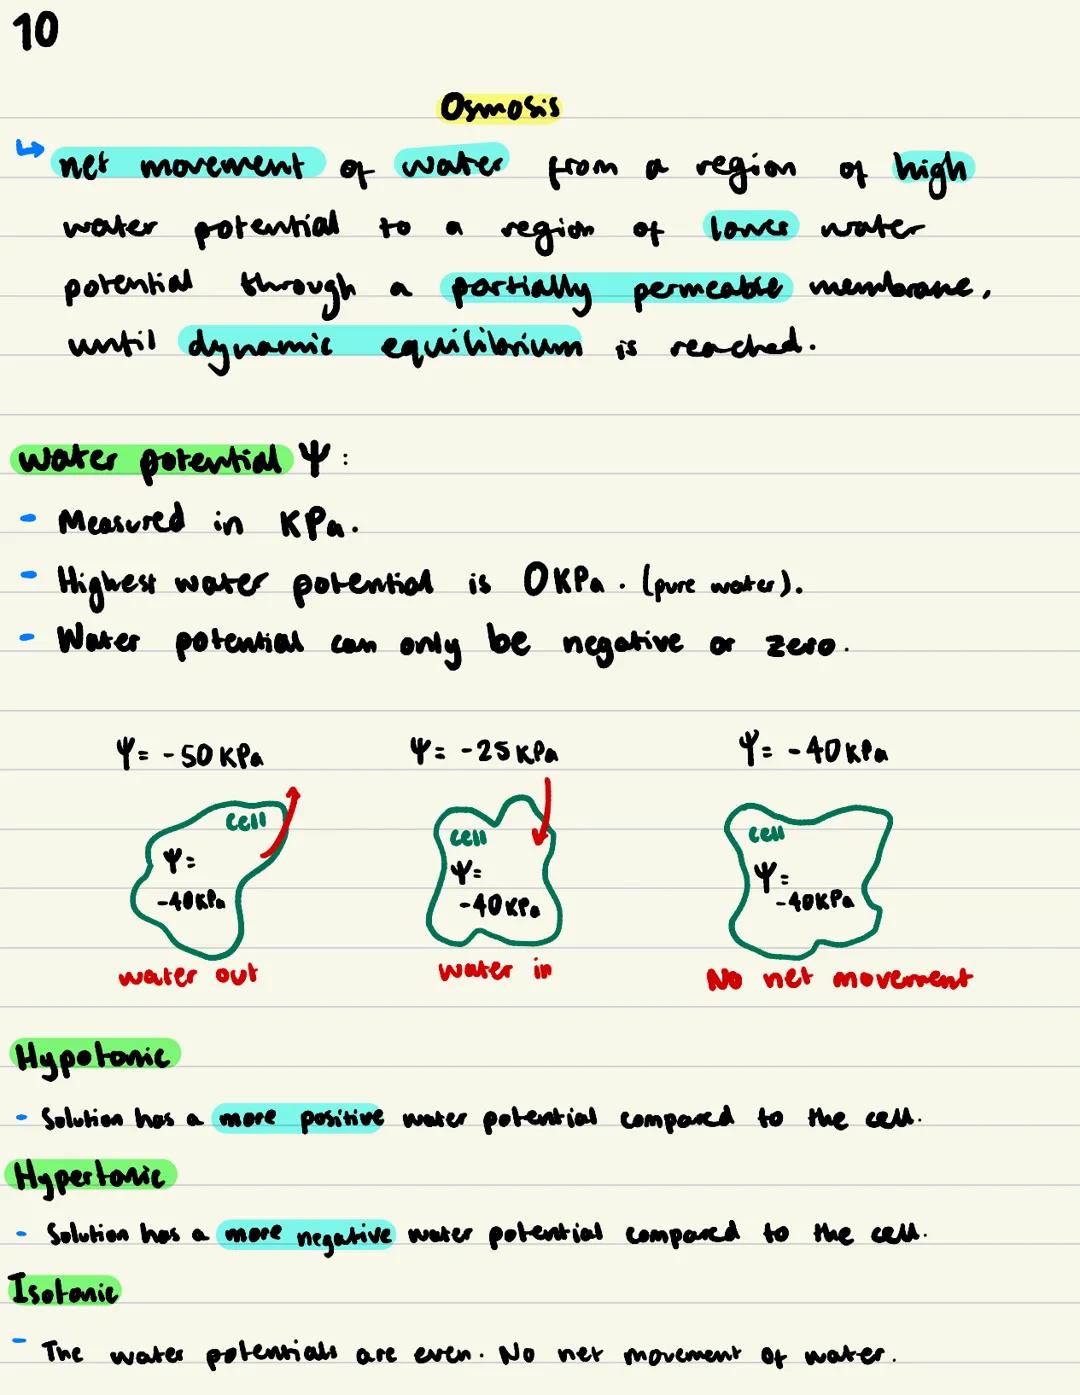 10
Osmosis
↳ net movement of water from a region of high
water potential to a region of lower water
potential through a partially permeable membrane,
until dynamic equilibrium is reached.
water potential Ψ:
- Measured in KPa.
- Highest water potential is 0KPa. (pure water).
- Water potential can only be negative or zero.
Ψ= -50 KPa
Ψ= -25 KPa
Ψ= -40 KPa
cell
Ψ=
-40KPa
cell
Ψ=
-40KPa
cell
Ψ=
-40KPa
water out
water in
No net movement
Hypotonic
- Solution has a more positive water potential compared to the cell.
Hypertonic
- Solution has a more negative water potential compared to the cell.
Isotonic
- The water potentials are even. No net movement of water.